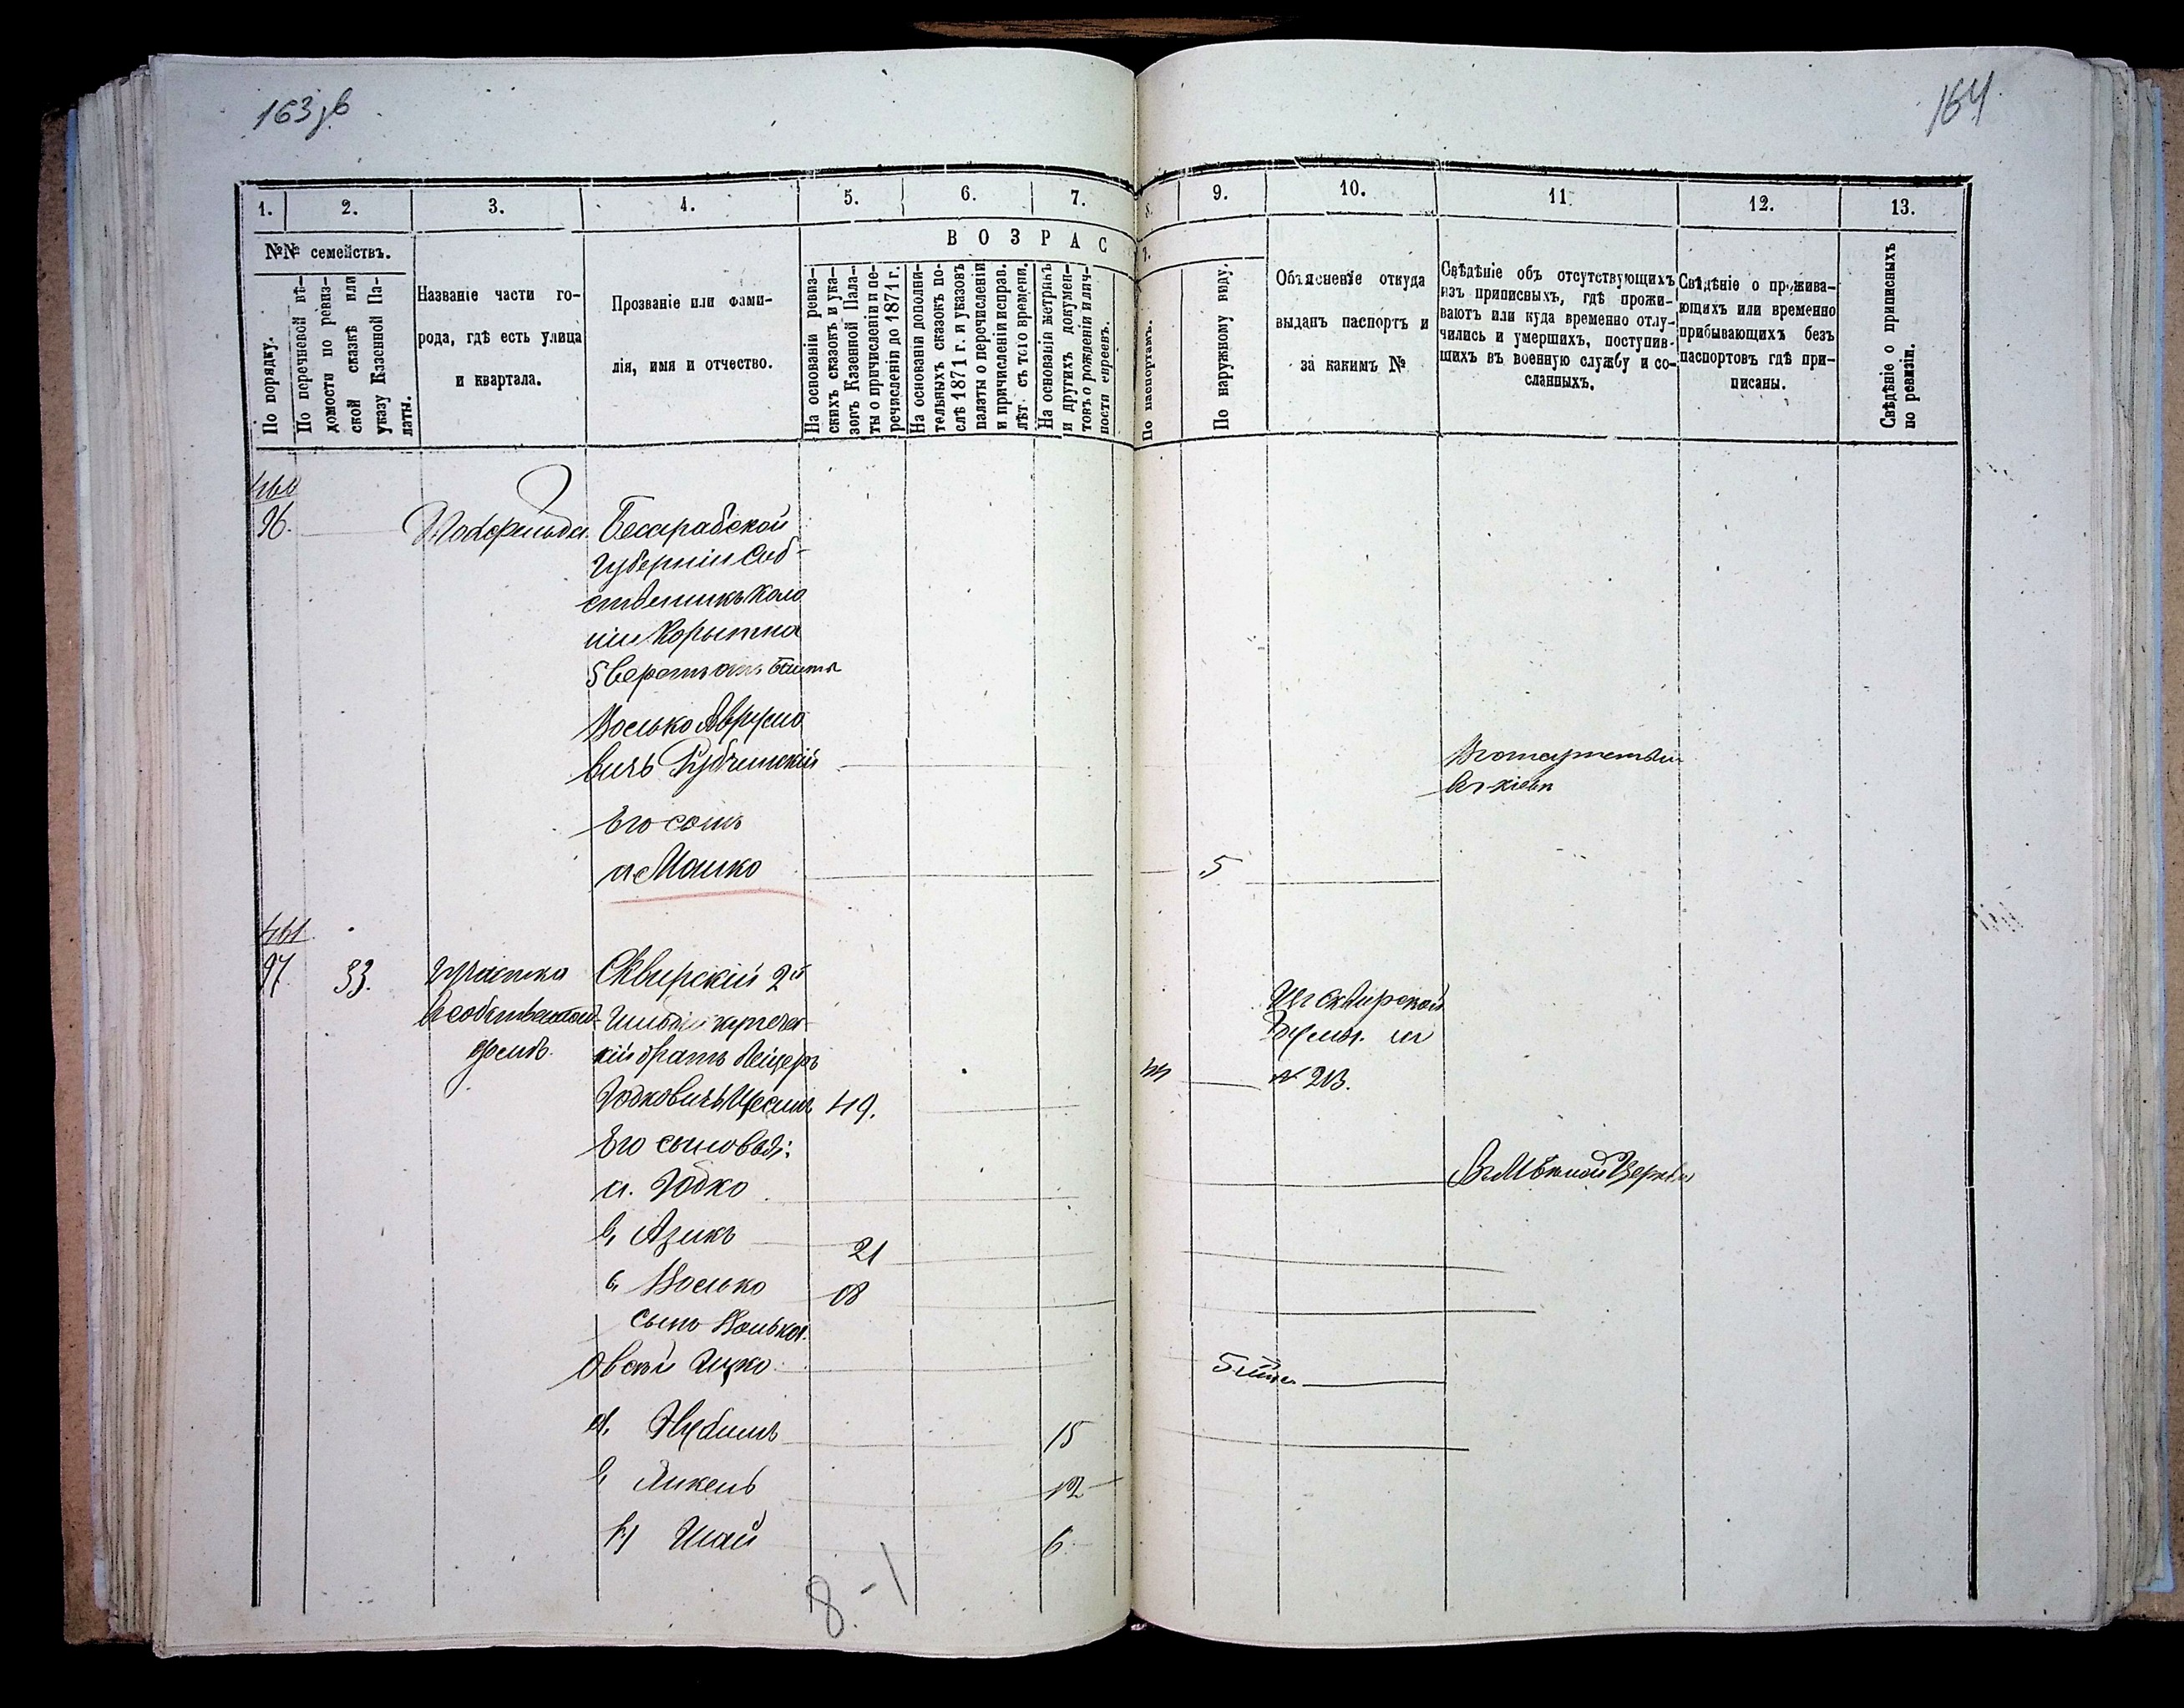 163 зв
164
1.
2.
3.
4.
5.
6.
7.
8.
9.
10.
11.
12.
13.
№№ семействъ.
ВОЗРАС
Т.
По порядку.
По перечневой вѣ-
домости по ревиз-
ской сказкѣ или
указу Казенной Па-
латы.
Названіе части го-
рода, гдѣ есть улица
и квартала.
Прозваніе или фами-
лія, имя и отчество.
На основаніи ревиз-
скихъ сказокъ и ука-
зовъ Казенной Пала-
ты о причисленіи и пе-
речисленіи до 1871 г.
На основаніи дополни-
тельныхъ сказокъ по-
слѣ 1871 г. и указовъ
палаты о перечисленіи
и причисленіи исправ.
лѣт. съ того времени.
На основаніи метрикъ
и другихъ докумен-
товъ о рожденіи и лич-
ности евреевъ.
По паспортамъ.
По наружному виду.
Объясненіе откуда
выданъ паспортъ и
за какимъ №
Свѣдѣніе объ отсутствующихъ
изъ приписныхъ, гдѣ прожи-
ваютъ или куда временно отлу-
чились и умершихъ, поступив-
шихъ въ военную службу и со-
сланныхъ.
Свѣдѣніе о прожива-
ющихъ или временно
прибывающихъ безъ
паспортовъ гдѣ при-
писаны.
Свѣдѣніе о приписныхъ
по ревизіи.
460
96.
Бесарабской
Губерніи Соб-
ственикъ Коло
ніи
Иосько Аврумо
вичъ
въ Кіевѣ
Его сынъ
а Мошко
5
461
97
33.
Сквирскій 2й
в собственном
Гильдіи купечес
доме.
кій братъ Лейзеръ
Іовковичъ
49.
Из Сквирской
Думы.
44
№ 213.
Его сыновья:
а. Іовко
в Бѣлой Церкви
б, Азикъ
21
в, Иосько
08
сынъ
Овсей Ицко
5 лет
а, Нухимъ
15
б, Янкель
12
в, Шай
6
8.-1